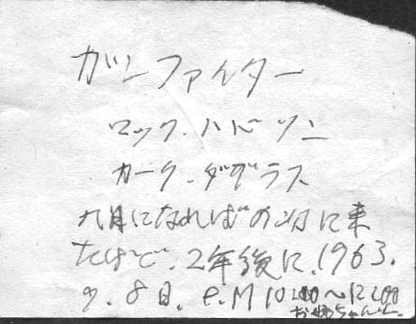 ガンファイター
ロック.ハドソン
カーク.ダグラス
九月になればの次に来
たけど.2年後に.1963.
9.8日.P.M10:00〜12:00